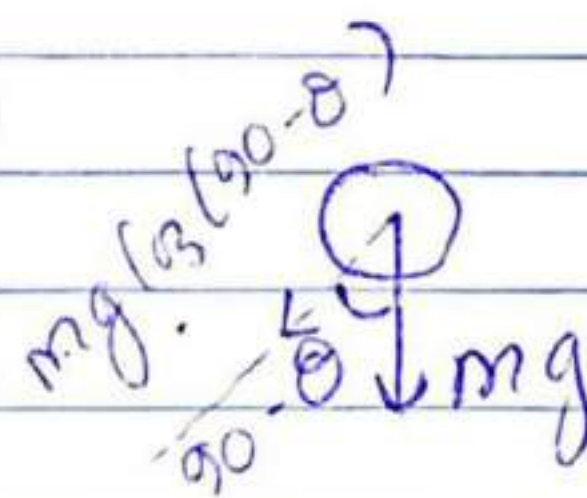 mg cos(90-θ)
90-θ
mg